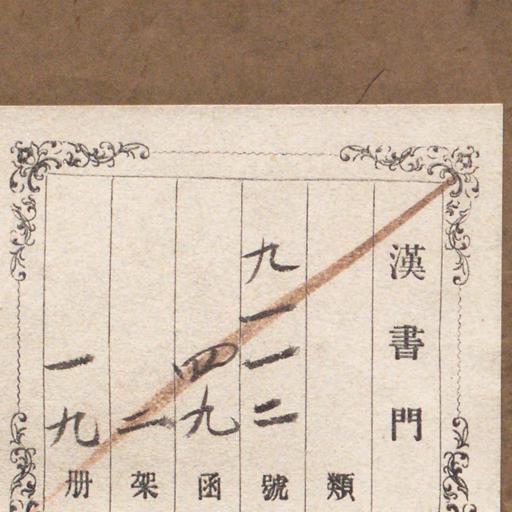 漢書門
類
九一一二號
四九函
二架
一九册